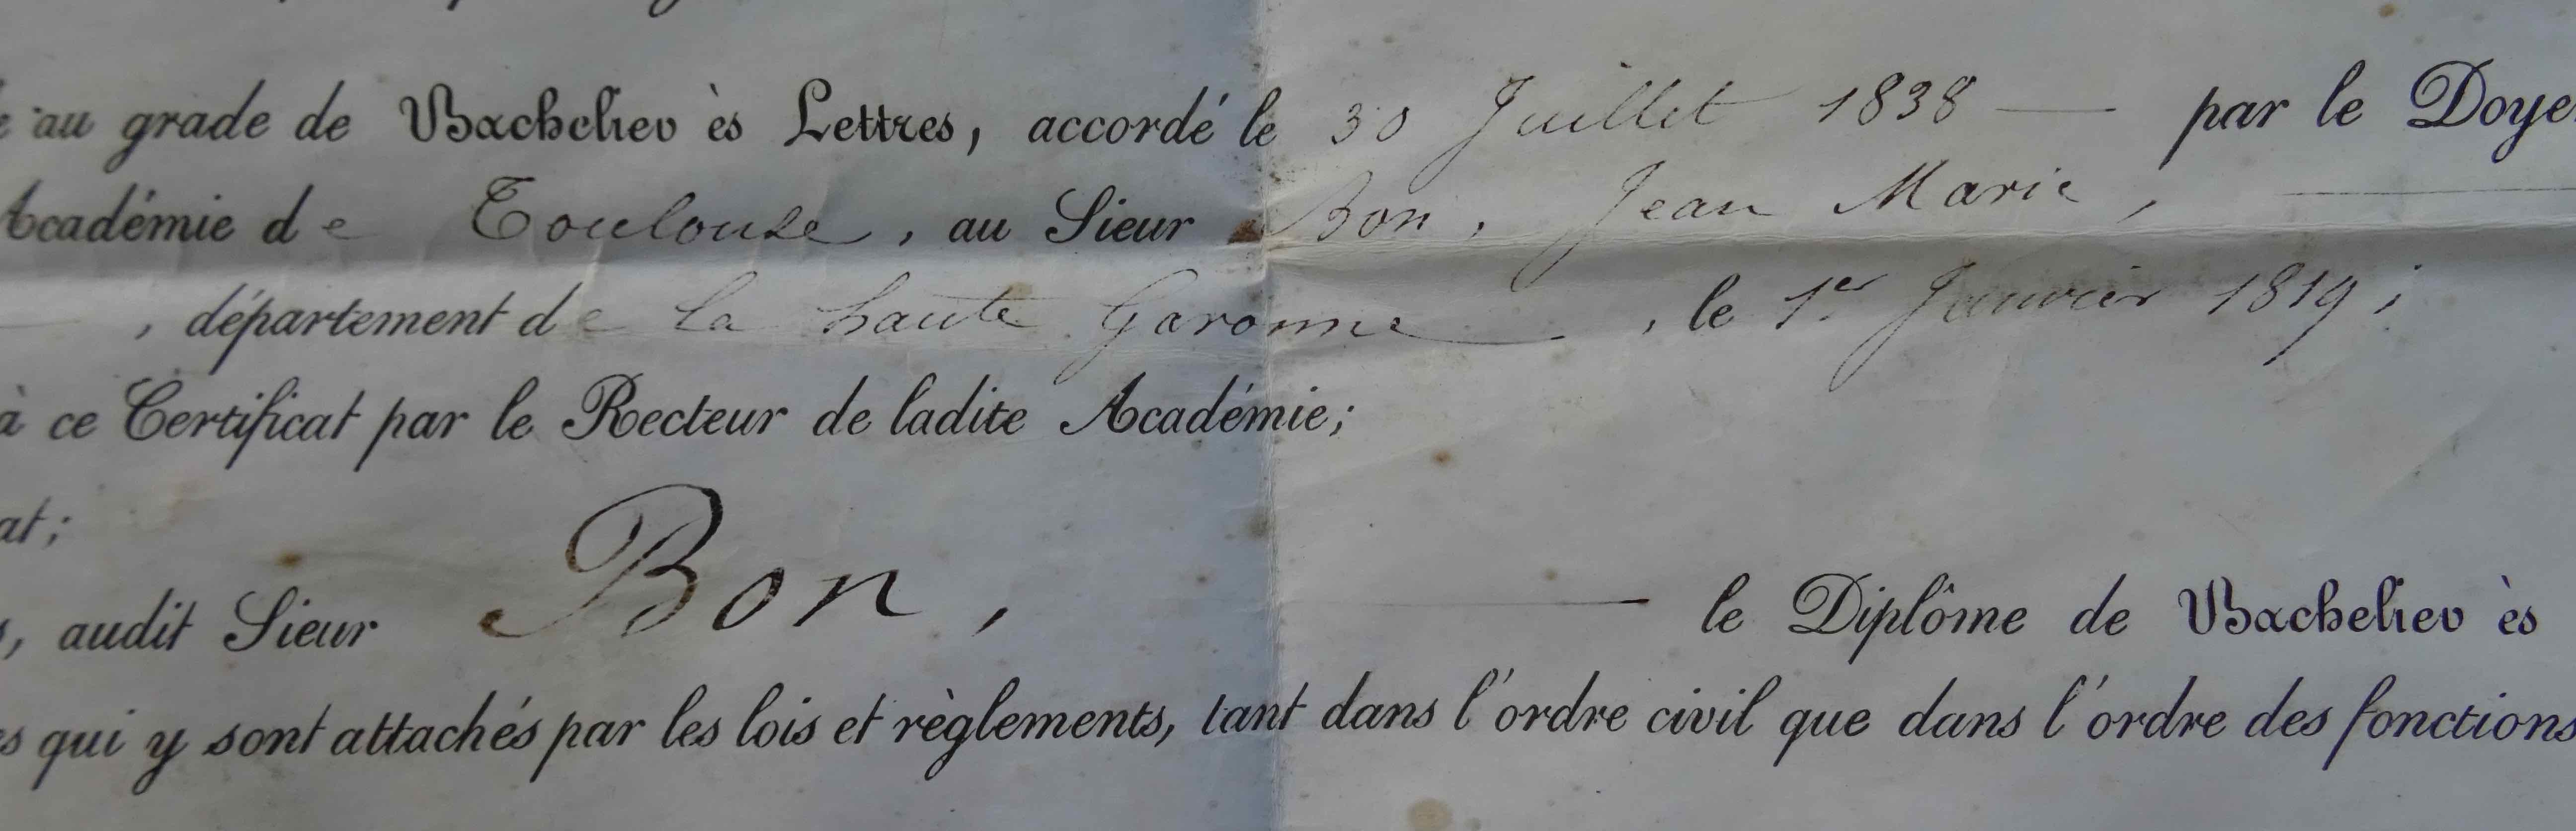 au grade de Bachelier ès Lettres, accordé le 30 Juillet 1838 — par le Doye
Académie de Toulouse, au Sieur Bon, Jean Marie, —
— , département de la haute Garonne , le 1er Janvier 1819 ;
à ce Certificat par le Recteur de ladite Académie;
at;
, audit Sieur Bon, — le Diplôme de Bachelier ès
s qui y sont attachés par les lois et règlements, tant dans l'ordre civil que dans l'ordre des fonctions